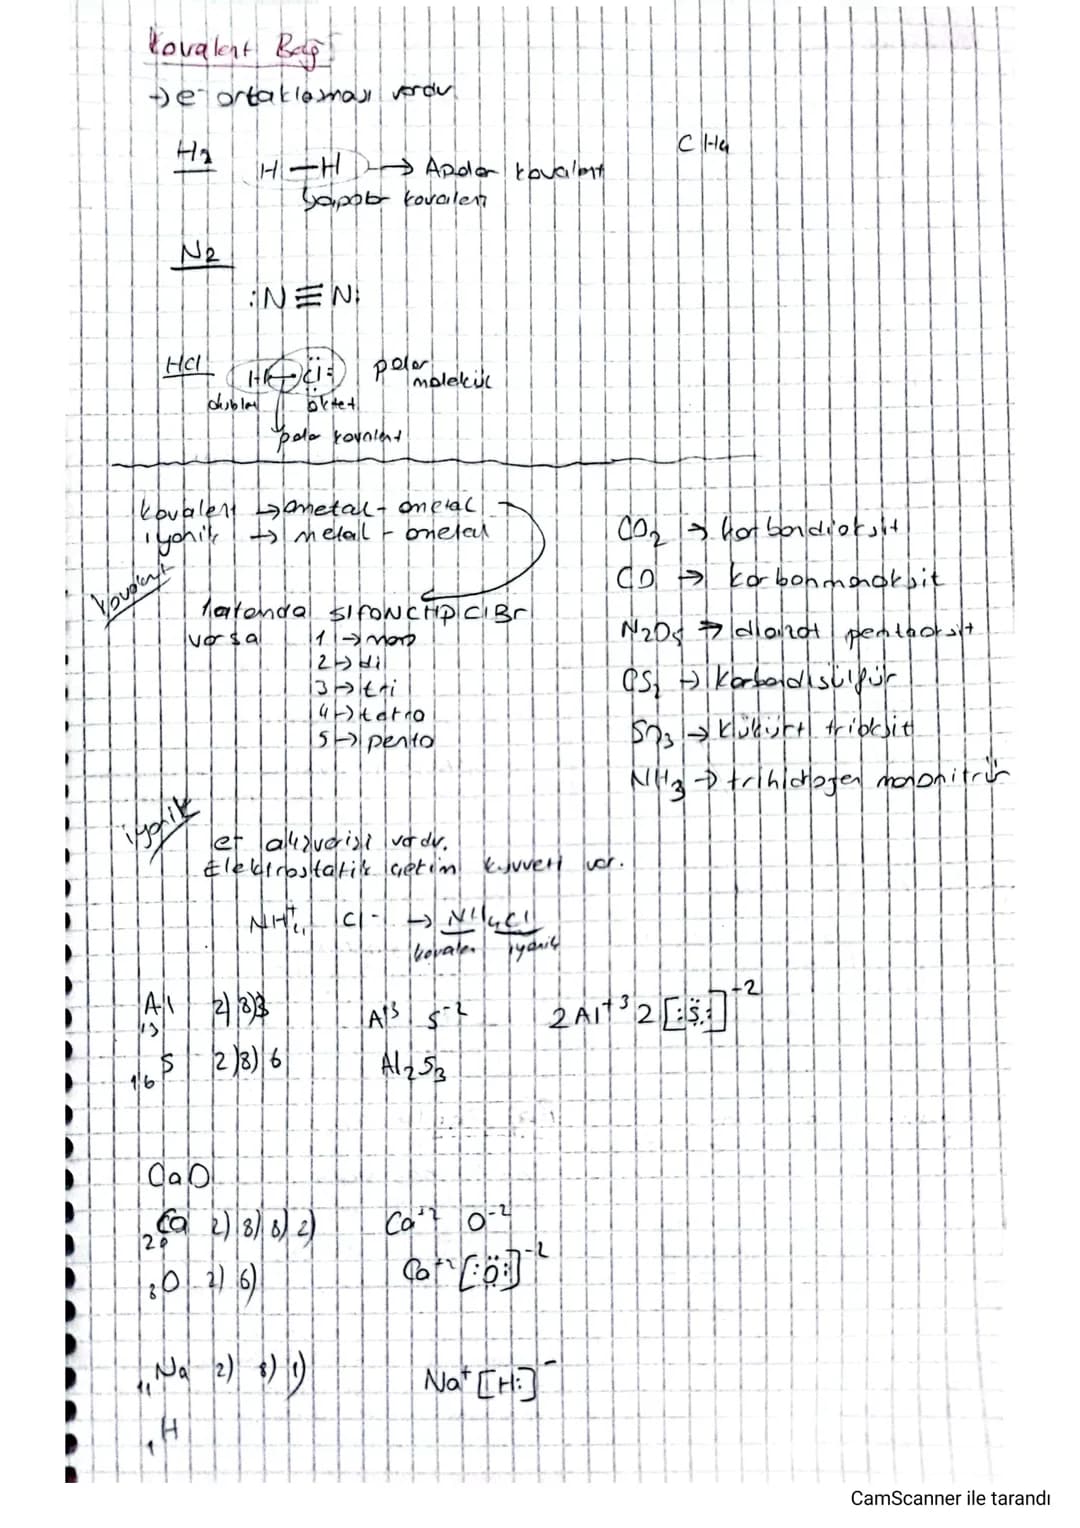 Kovalent Bağ
→ e⁻ ortaklaşması vardır
CH4
H2
H—H → Apolar kovalent
kovalent
N2
:N≡N:
HCl
H Cl: polar molekül
dublet oktet
polar kovalent
kovalent → ametal - ametal
iyonik → metal - ametal
kovalent
hatanda SIFONCHPClBr
varsa
1 → mono
2 → di
3 → tri
4 → tetra
5 → penta
CO2 → karbondioksit
CO → karbonmonoksit
N2O5 → diazot pentaoksit
CS2 → Karbondisülfür
SO3 → Kükürt trioksit
NH3 → trihidrojen mononitrür
iyonik
e⁻ alışverişi vardır.
Elektrostatik çetim kuvveti var.
NH4⁺ Cl⁻ → NH4Cl
kovalen iyonik
13Al 2) 8) 3
Al³ S⁻²
2Al⁺³ 2[:S:]⁻²
16S 2) 8) 6
Al2S3
CaO
20Ca 2) 8) 8) 2)
Ca⁺² O⁻²
8O 2) 6)
Ca⁺² [:O:]⁻²
11Na 2) 8) 1)
Na⁺ [H:]⁻
1H
CamScanner ile tarandı